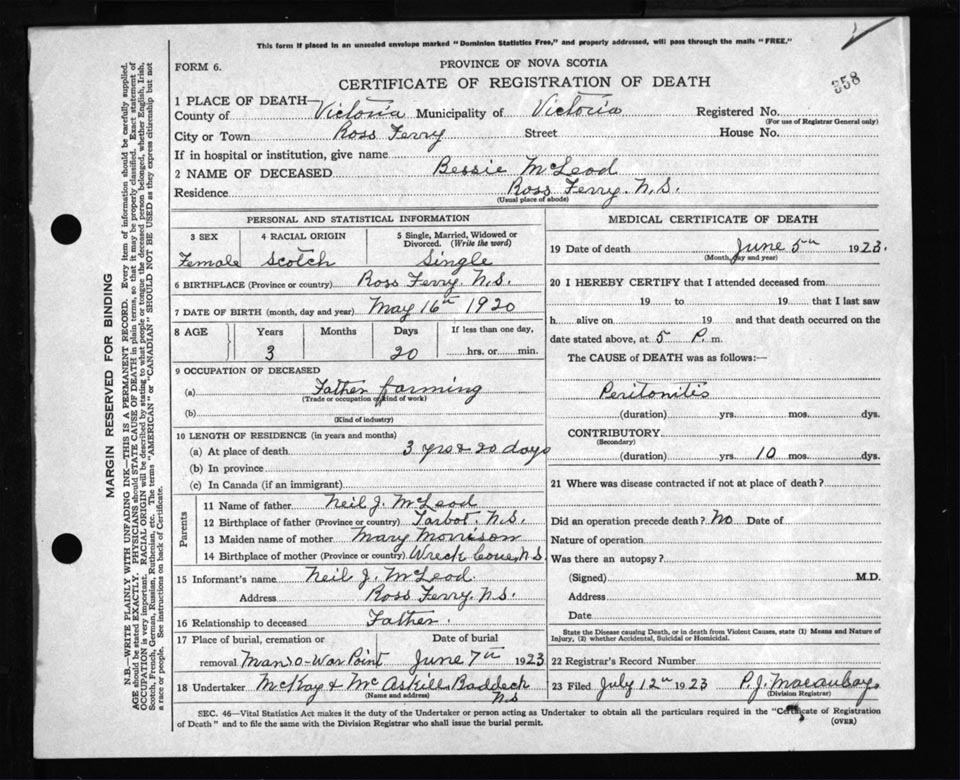 This form if placed in an unsealed envelope marked "Dominion Statistics Free," and properly addressed, will pass through the mails "FREE."
FORM 6.
PROVINCE OF NOVA SCOTIA
CERTIFICATE OF REGISTRATION OF DEATH
358
1 PLACE OF DEATH—
County of Victoria Municipality of Victoria Registered No.
(For use of Registrar General only)
City or Town Ross Ferry Street House No.
If in hospital or institution, give name
2 NAME OF DECEASED Bessie McLeod
Residence Ross Ferry. N.S.
(Usual place of abode)
PERSONAL AND STATISTICAL INFORMATION
3 SEX 4 RACIAL ORIGIN 5 Single, Married, Widowed or Divorced. (Write the word)
Female Scotch Single
6 BIRTHPLACE (Province or country) Ross Ferry. N.S.
7 DATE OF BIRTH (month, day and year) May 16th 1920
8 AGE Years Months Days If less than one day,
3 20 hrs. or min.
9 OCCUPATION OF DECEASED
(a) Father farming
(Trade or occupation or kind of work)
(b)
(Kind of industry)
10 LENGTH OF RESIDENCE (in years and months)
(a) At place of death 3 yrs & 20 days
(b) In province
(c) In Canada (if an immigrant)
Parents
11 Name of father Neil J. McLeod
12 Birthplace of father (Province or country) Tarbot. N.S.
13 Maiden name of mother Mary Morrison
14 Birthplace of mother (Province or country) Wreck Cove, N.S.
15 Informant's name Neil J. McLeod
Address Ross Ferry. N.S.
16 Relationship to deceased Father.
17 Place of burial, cremation or Date of burial
removal Man-o-War Point June 7th 1923
18 Undertaker McKay & McAskill Baddeck
(Name and address) N.S
MEDICAL CERTIFICATE OF DEATH
19 Date of death June 5th 1923.
(Month, day and year)
20 I HEREBY CERTIFY that I attended deceased from
19 to 19 that I last saw
h alive on 19 and that death occurred on the
date stated above, at 5 P. m.
The CAUSE of DEATH was as follows:—
Peritonitis
(duration) yrs. mos. dys.
CONTRIBUTORY
(Secondary)
(duration) yrs. 10 mos. dys.
21 Where was disease contracted if not at place of death?
Did an operation precede death? No Date of
Nature of operation
Was there an autopsy?
(Signed) M.D.
Address
Date
State the Disease causing Death, or in death from Violent Causes, state (1) Means and Nature of
Injury, (2) whether Accidental, Suicidal or Homicidal.
22 Registrar's Record Number
23 Filed July 12th 1923 P. J. Macaulay
(Division Registrar)
SEC. 46—Vital Statistics Act makes it the duty of the Undertaker or person acting as Undertaker to obtain all the particulars required in the "Certificate of Registration
of Death" and to file the same with the Division Registrar who shall issue the burial permit.
(OVER)
MARGIN RESERVED FOR BINDING
N.B.—WRITE PLAINLY WITH UNFADING INK—THIS IS A PERMANENT RECORD. Every item of information should be carefully supplied.
AGE should be stated EXACTLY. PHYSICIANS should STATE CAUSE OF DEATH in plain terms, so that it may be properly classified. Exact statement of
OCCUPATION is very important. RACIAL ORIGIN will be described by stating to what people or tongue the deceased person belonged, whether English, Irish,
Scotch, French, German, Russian, Ruthenian, etc. The terms "AMERICAN" or "CANADIAN" SHOULD NOT BE USED as they express citizenship but not
a race or people. See instructions on back of Certificate.